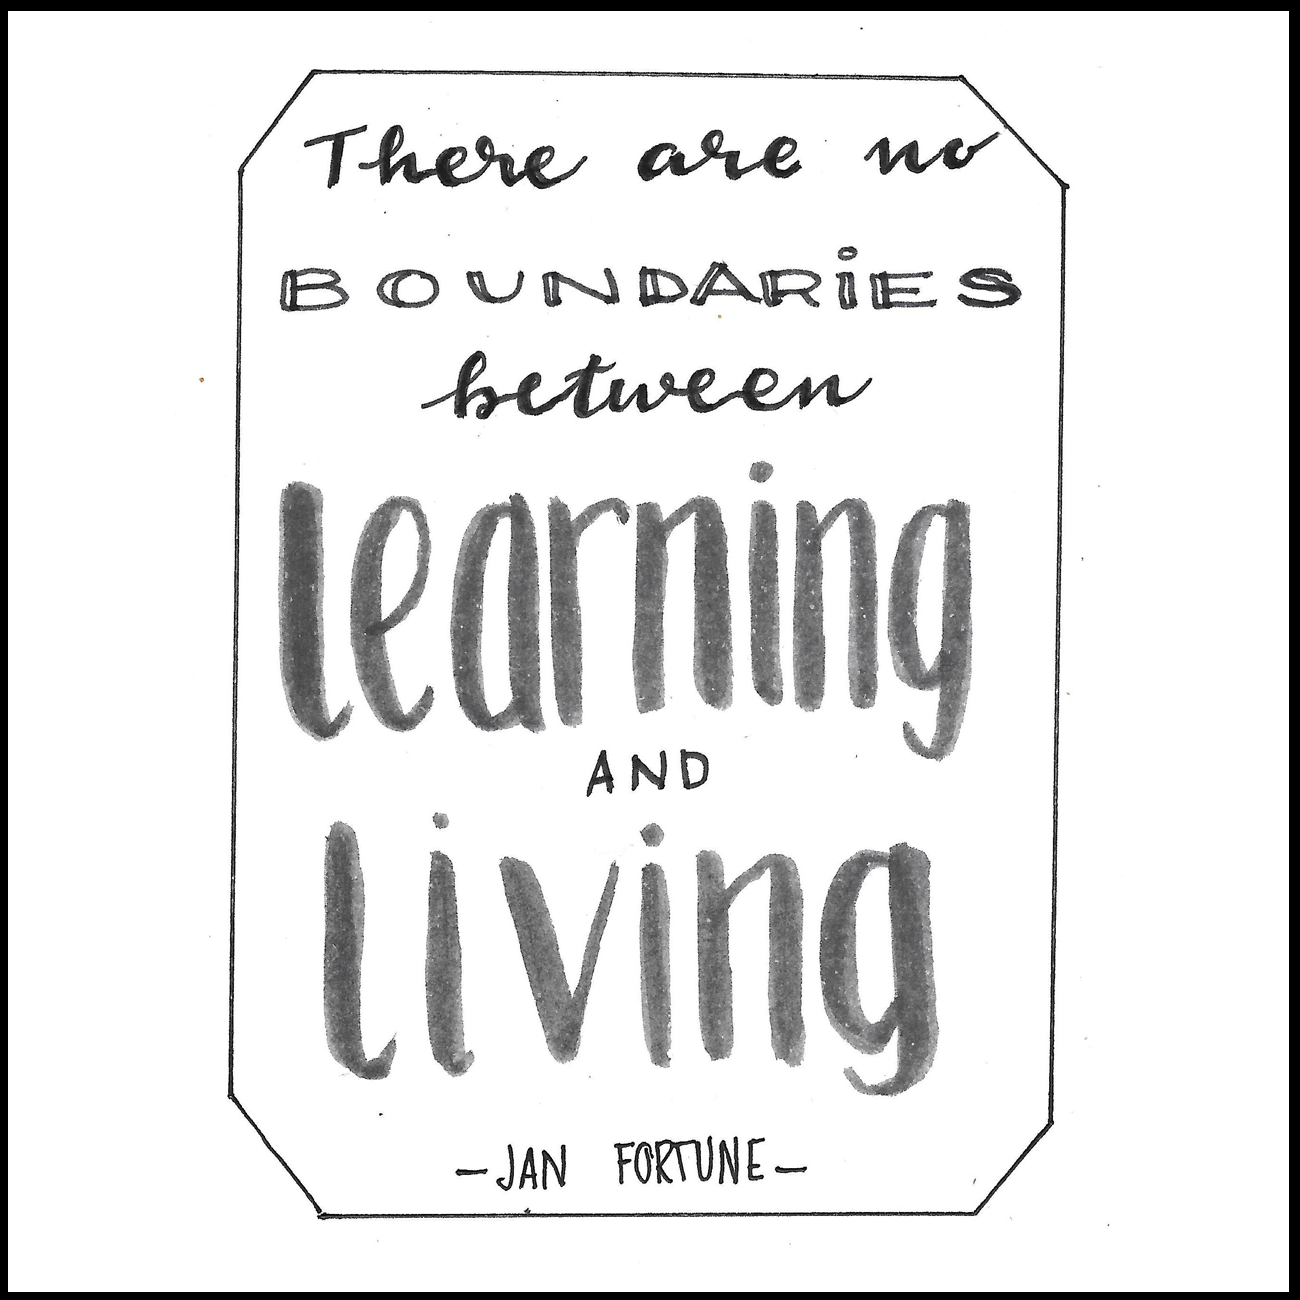 There are no
BOUNDARiES
between
learning
AND
living
-JAN FORTUNE-